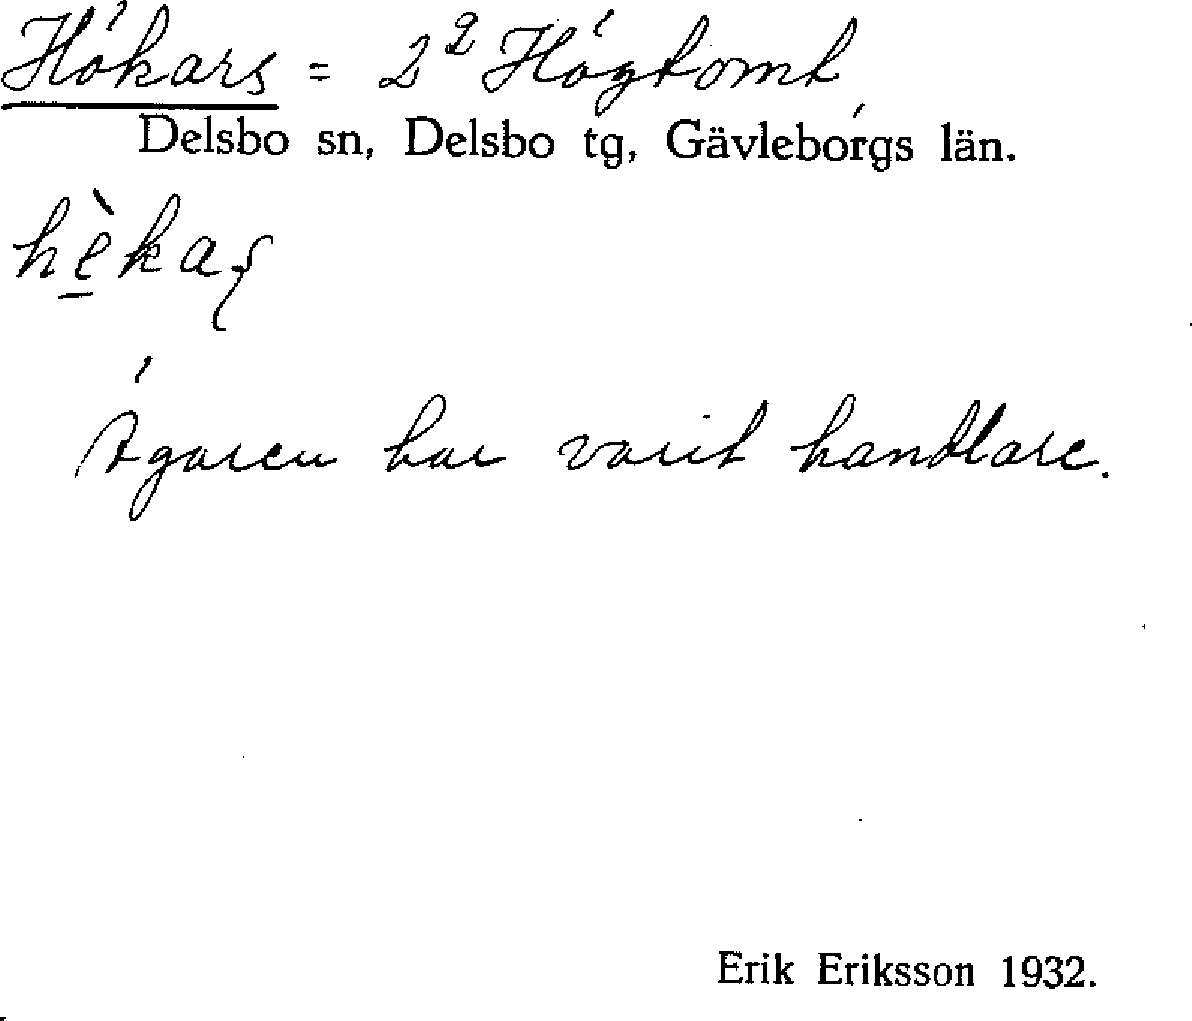 Hökars = 2² Högtomt,
Delsbo sn, Delsbo tg, Gävleborgs län.
Ägaren har varit handlare.
Erik Eriksson 1932.